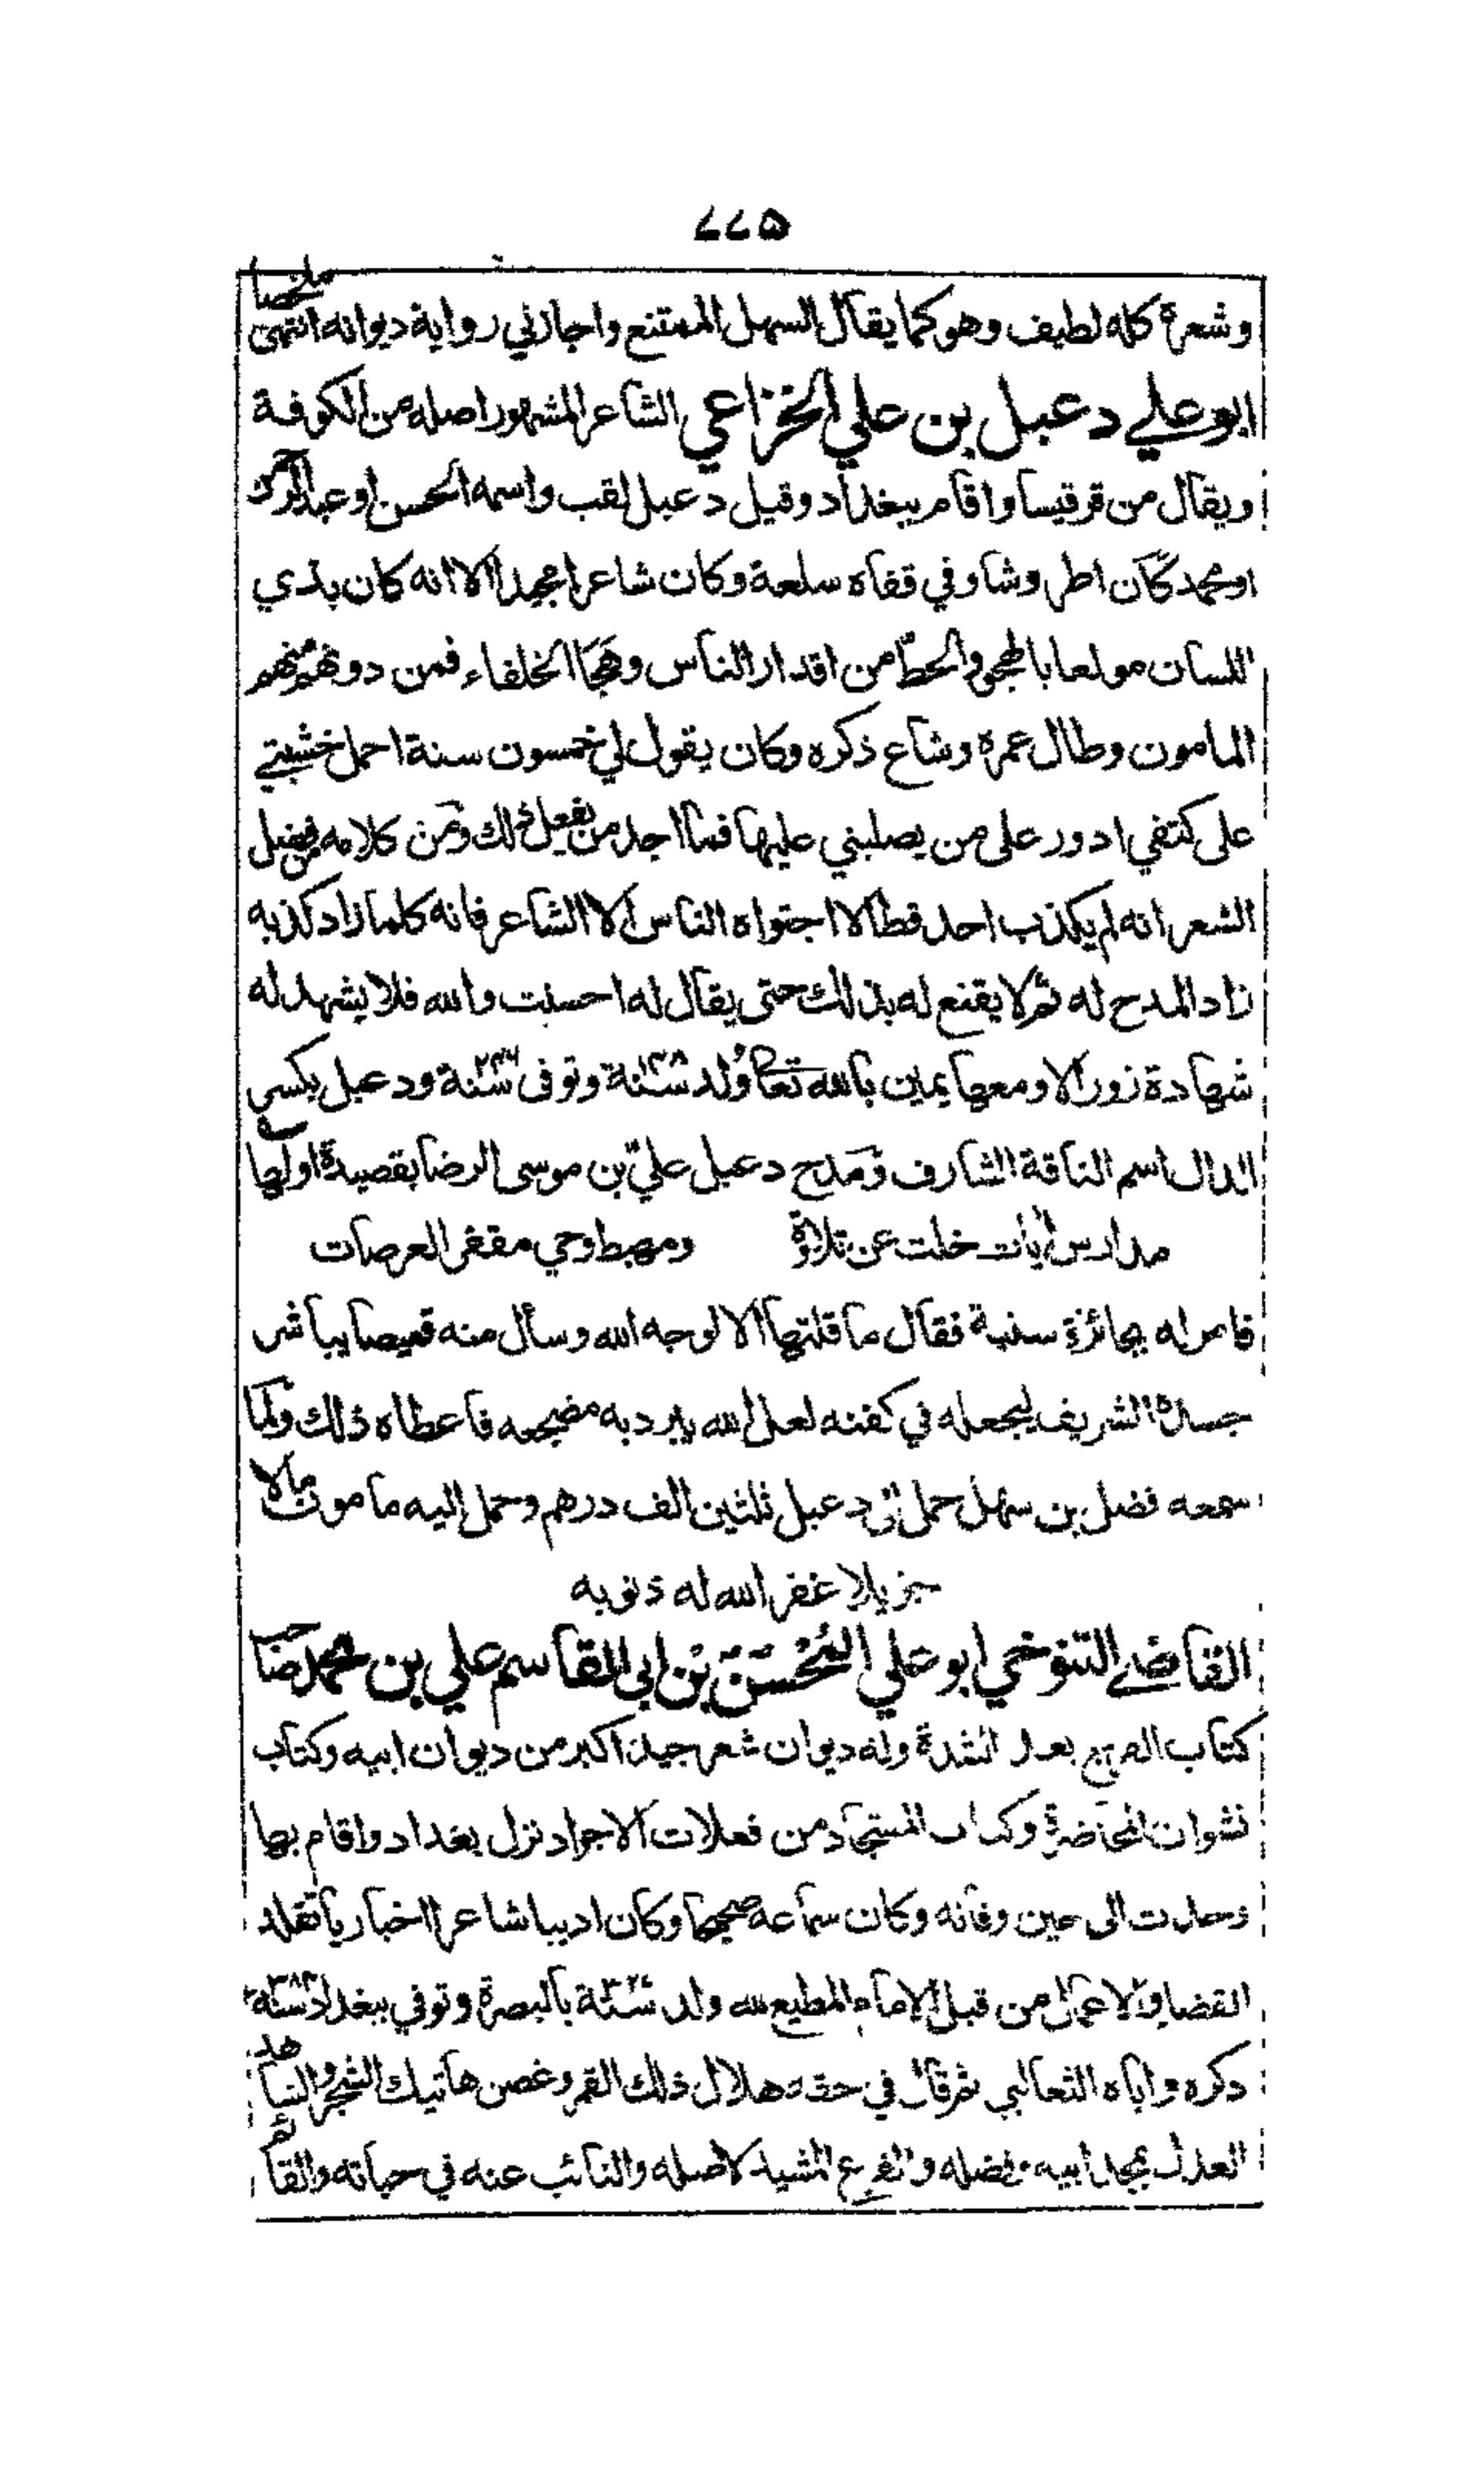 ٧٧٥
وشعره كله لطيف وهو كما يقال السهل الممتنع واجازلي رواية ديوانه انتهى ملخصا
ابو علي دعبل بن علي الخزاعي الشاعر المشهور اصله من الكوفة
ويقال من قرقيسا واقام ببغداد وقيل دعبل لقب واسمه الحسن او عبد الرحمن
او محمد كان اطروشا وفي قفاه سلعة وكان شاعرا مجيدا الا انه كان بذي
اللسان مولعا بالهجو والحط من اقدار الناس وهجا الخلفاء فمن دونهم منهم
المامون وطال عمره وشاع ذكره وكان يقول لي خمسون سنة احمل خشبتي
على كتفي ادور على من يصلبني عليها فما اجد من يفعل ذلك ومن كلامه من فضل
الشعر انه لم يكذب احد قط الا اجتواه الناس الا الشاعر فانه كلما زاد كذبه
زاد المدح له ثم لا يقنع له بذلك حتى يقال له احسنت والله فلا يشهد له
شهادة زور الا ومعها يمين بالله تعا ولد سنة ١٤٨ وتوفى سنة ٢٤٦ ودعبل بكسر
الدال اسم الناقة الشارف ومدح دعبل علي بن موسى الرضا بقصيدة اولها
مدارس ايات خلت عن تلاوة ومهبط وحي مقفر العرصات
فامر له بجائزة سنية فقال ما قلتها الا لوجه الله وسأل منه قميصا يباشر
جسده الشريف ليجعله في كفنه لعل الله يبرد به مضجعه فاعطاه ذلك ولما
سمعه فضل بن سهل حمل الى دعبل ثلثين الف درهم وحمل اليه مامون مالا
جزيلا غفر الله له ذنوبه
القاضي التنوخي ابو علي المحسن بن ابي القاسم علي بن محمد صاحب
كتاب الفرج بعد الشدة وله ديوان شعر جيد اكبر من ديوان ابيه وكتاب
نشوان المحاضرة وكتاب المستجاد من فعلات الاجواد نزل بغداد واقام بها
وحدث الى حين وفاته وكان سماعه صحيحا وكان اديبا شاعرا اخباريا تقلد
القضاء الاعمال من قبل الامام المطيع لله ولد سنة بالبصرة وتوفي ببغداد سنة ٣٨٤
ذكره واباه الثعالبي ثم قال في حقه هلال ذلك القمر وغصن هاتيك الشجر والشاهد
العدل بمجد ابيه وفضله والفرع المشيد لاصله والنائب عنه في حياته والقائم